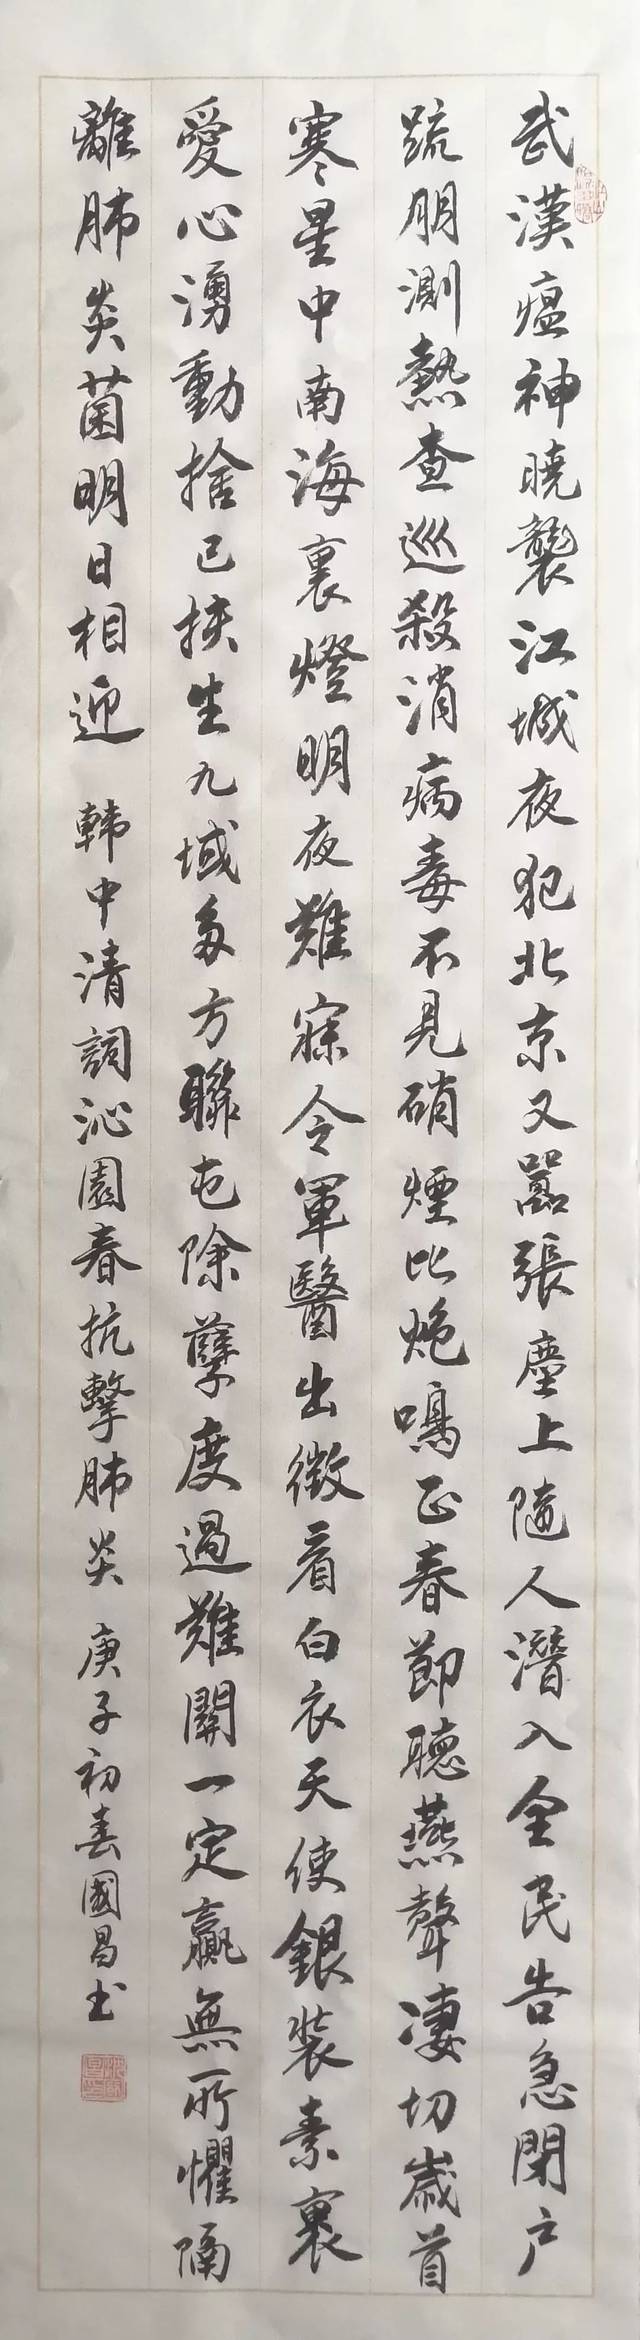 武漢瘟神曉襲江城夜犯北京又囂張塵上隨人潛入全民告急閉户
疏朋測熱查巡殺消病毒不見硝煙比炮鳴正春節聽燕聲凄切歲首
寒星中南海裏燈明夜難寐令軍醫出徵看白衣天使銀裝素裹
愛心湧動捨己扶生九域多方聯屯除孽度過難關一定贏無所懼隔
離肺炎菌明日相迎 韓中清詞沁園春抗擊肺炎 庚子初春國昌书